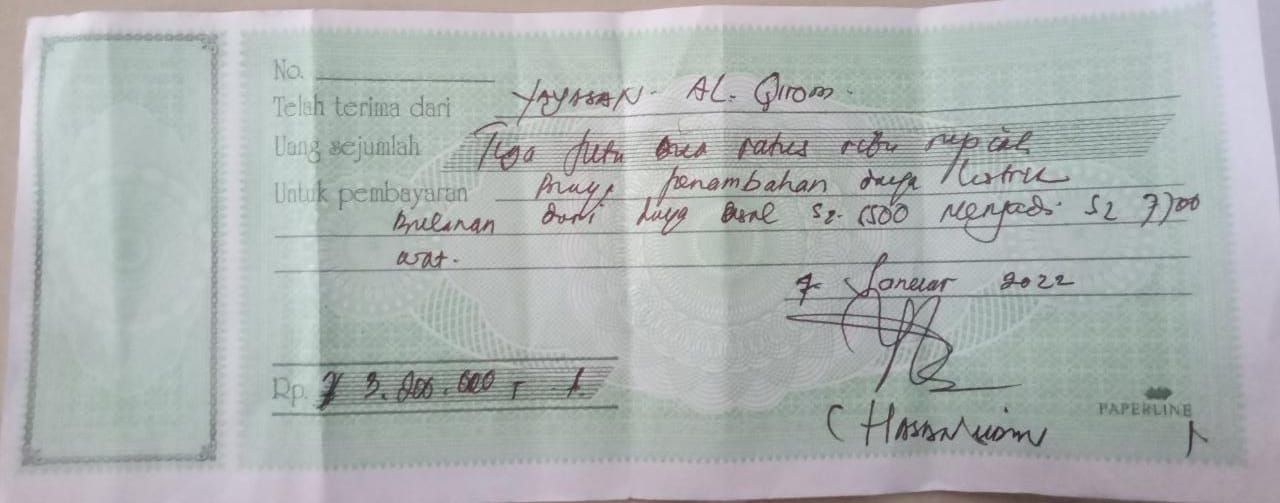 No.
Telah terima dari YAYASAN AL. Qirom.
Uang sejumlah Tiga juta dua ratus ribu rupiah
Untuk pembayaran Biaya penambahan daya listrik
Bulanan dari daya S2. 1500 Menjadi S2 7700
wat.
7 Januar 2022
Rp. 3.200.000,-
PAPERLINE